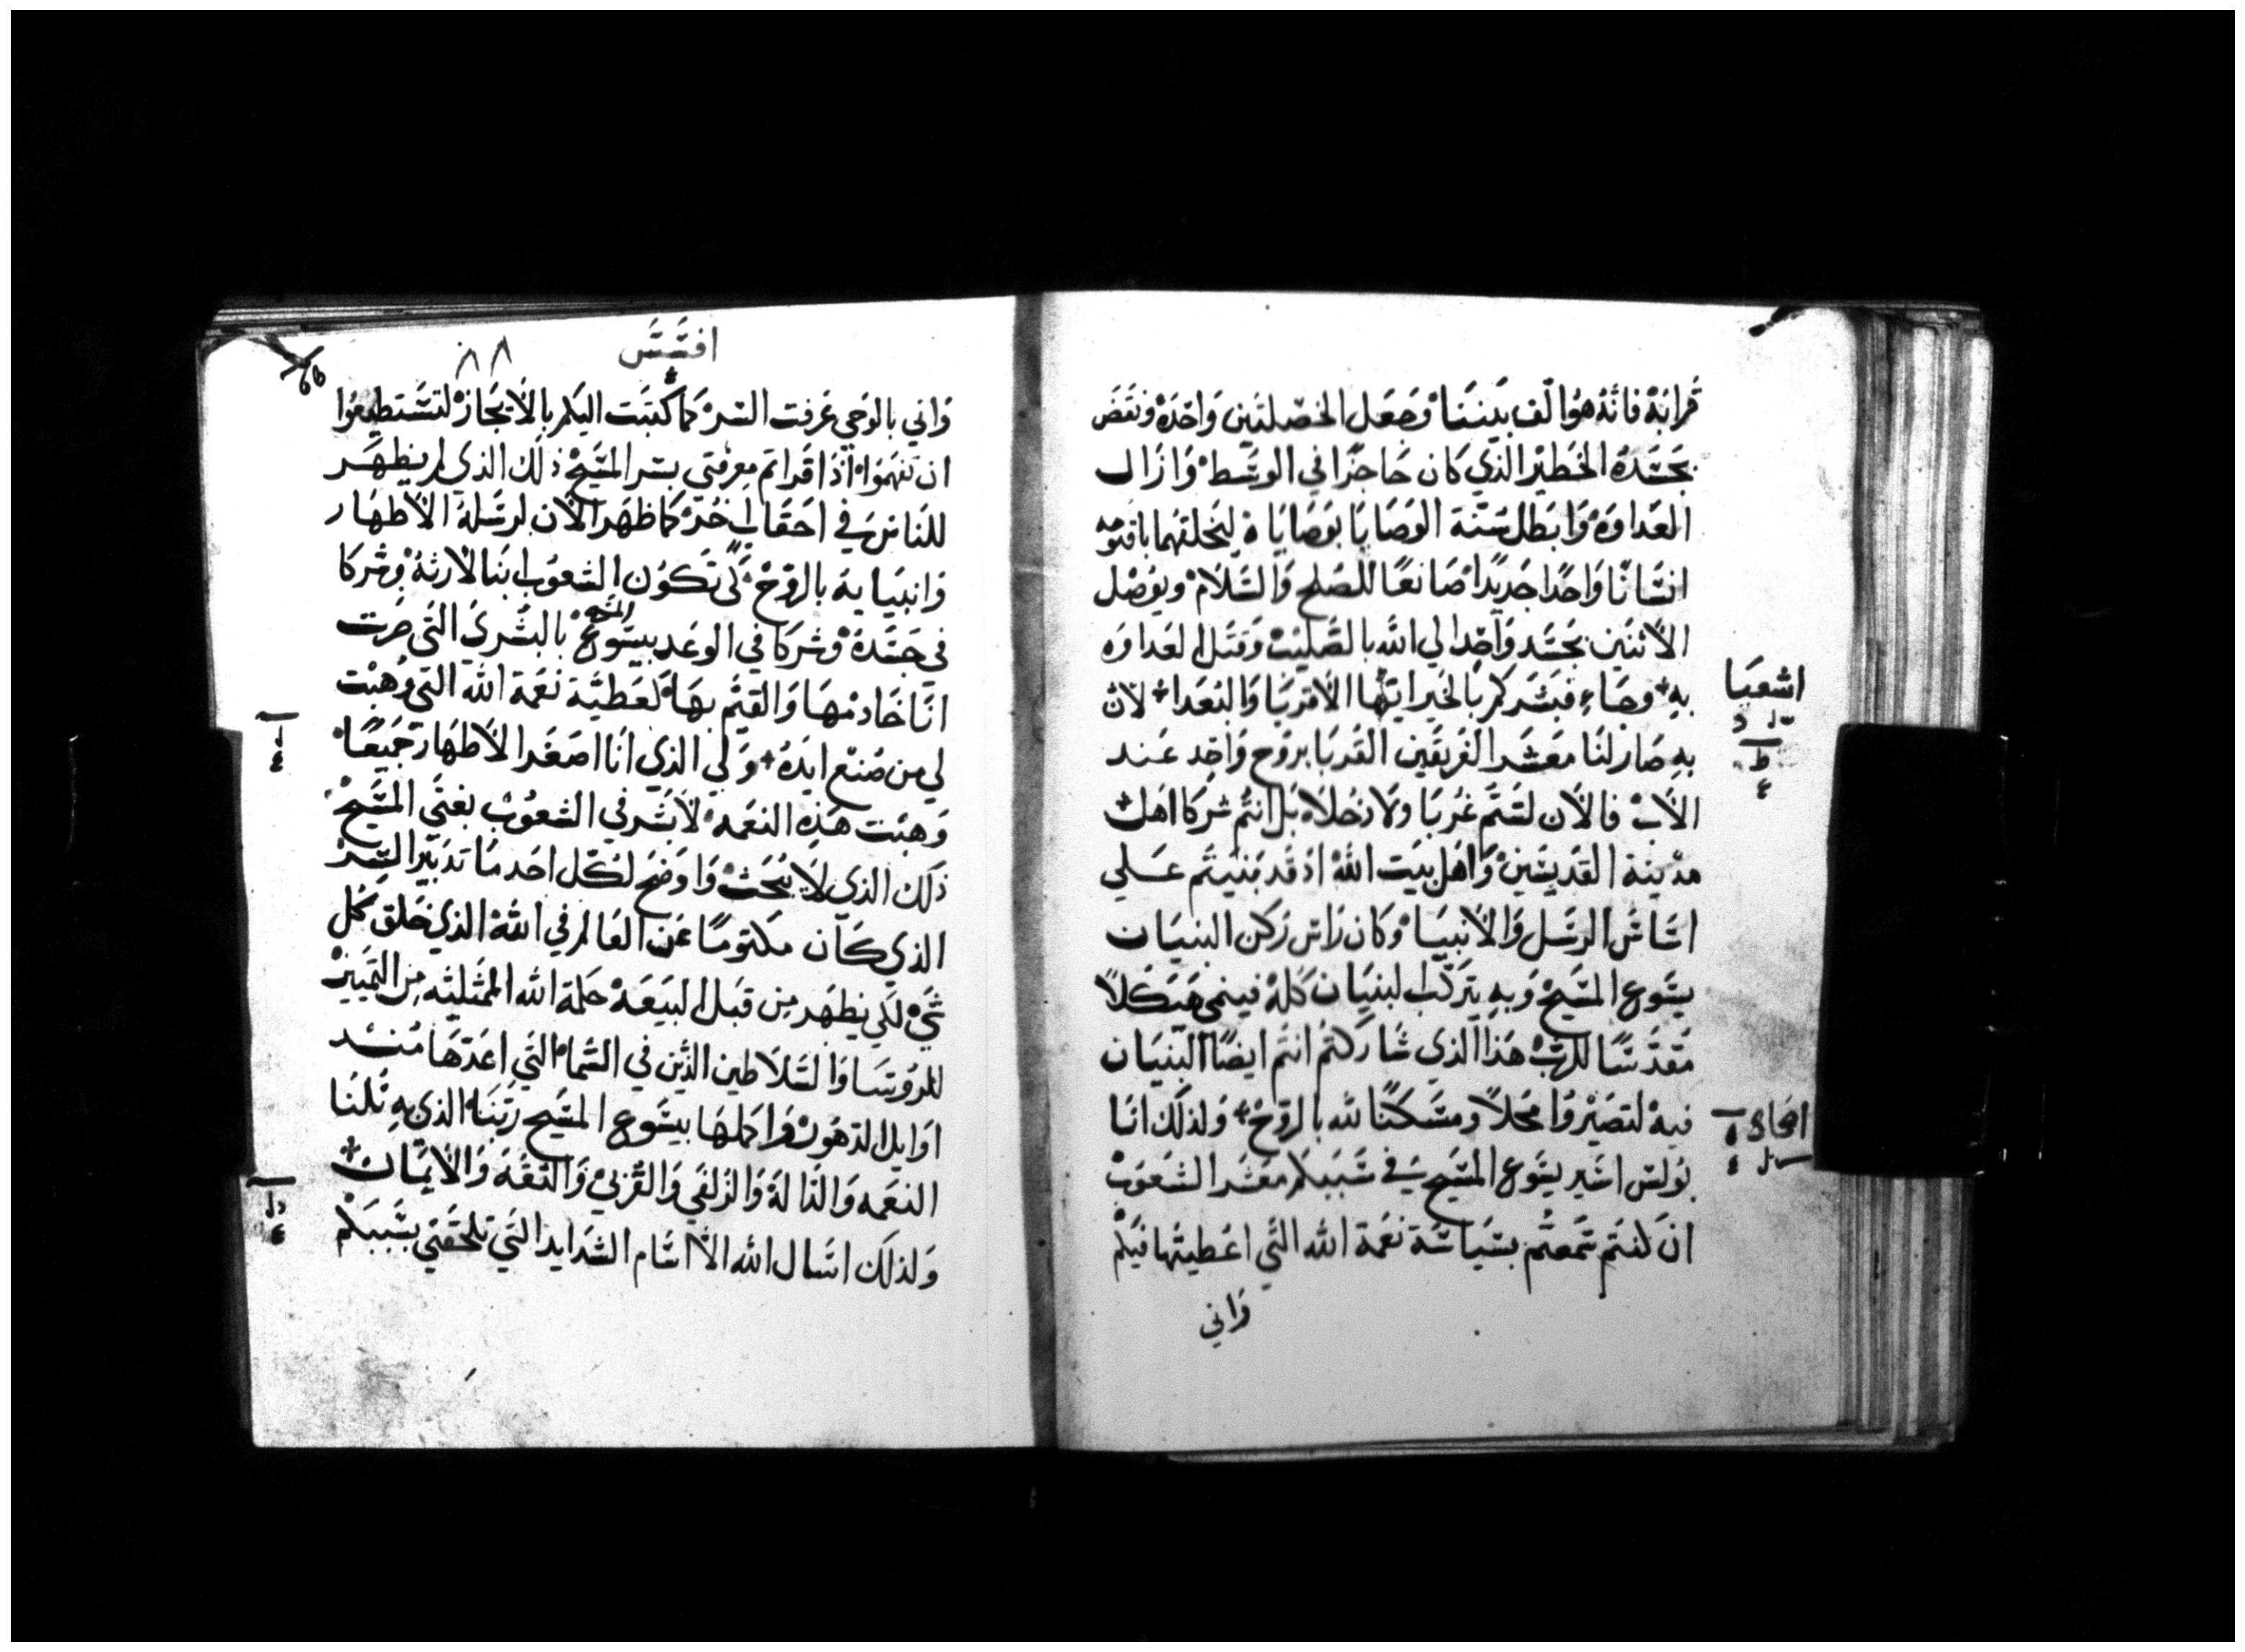 قرابة فانه هو الف بيننا وجعل الخصلتين واحده ونقض
بجسده الخطير الذي كان حاجزا في الوسط وازال
العداوه وابطل سنة الوصايا بوصاياه ليخلقهما باقنومه
انسانا واحدا جديدا صانعا للصلح والسلام ويوصل
الاثنين بجسد واحد الي الله بالصليب وقتل العداوه
به وجاء فبشركم بالخير ايها الاقربا والبعدا لان
به صار لنا معشر الفريقين القربا بروح واحد عند
الاب فالان لستم غربا ولا دخلاء بل انتم شركا اهل
مدينة القديسين واهل بيت الله اذ قد بنيتم علي
اساس الرسل والانبيا وكان راس ركن البنيان
يسوع المسيح وبه يتركب البنيان كله فينمي هيكلا
مقدسا للرب هذا الذي شاركتم انتم ايضا البنيان
فيه لتصيروا محلا ومسكنا لله بالروح ولذلك انا
بولس اسير يسوع المسيح في سببكم معشر الشعوب
ان كنتم سمعتم بسياسة نعمة الله التي اعطيتها فيكم
واني
اشعيا
اصحاح
افسس
٨٨
واني بالوحي عرفت السر كما كتبت اليكم بالايجاز لتستطيعوا
ان تفهموا اذا قراتم معرفتي بسر المسيح ذلك الذي لم يظهر
للناس في احقاب اخر كما ظهر الان لرسله الاطهار
وانبيايه بالروح لكي تكون الشعوب ابنا لارثه وشركا
في جسده وشركا في الوعد بيسوع المسيح بالبشري التي صرت
انا خادمها والقيم بها لعطية نعمة الله التي وهبت
لي من صنع ايده ولي الذي انا اصغر الاطهار جميعا
وهبت هذه النعمه لابشر في الشعوب بغني المسيح
ذلك الذي لا يبحث واوضح لكل احد ما تدبير السر
الذي كان مكتوما عن العالم في الله الذي خلق كل
شي لكي يظهر من قبل البيعه حكمة الله الممثلية من التمييز
للروسا والسلاطين الذين في السما التي اعدها منذ
اوايل الدهور واكملها بيسوع المسيح ربنا الذي به نلنا
النعمه والدالة والزلفي والقربي والثقه والايمان
ولذلك اسال الله الا اسام الشدايد التي تلحقني بسببكم